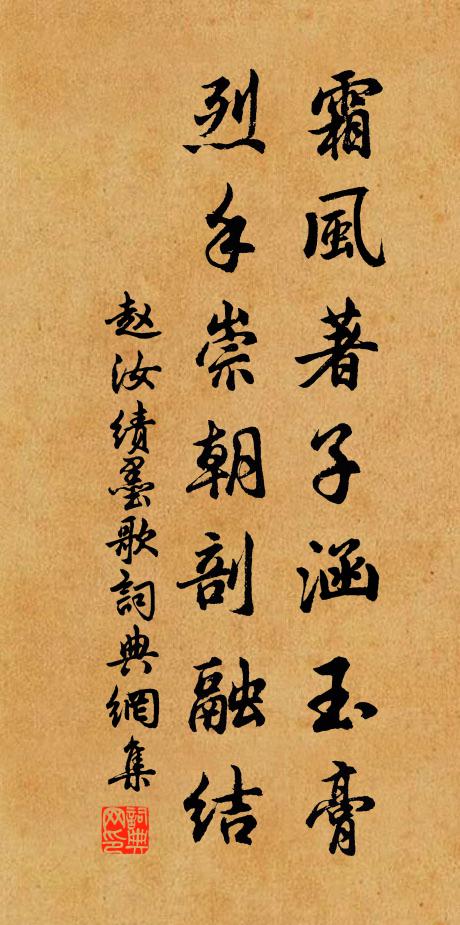 霜風著子涵玉膏
烈手崇朝剖融結
赵汝績墨歌詞典網集
詞典网印